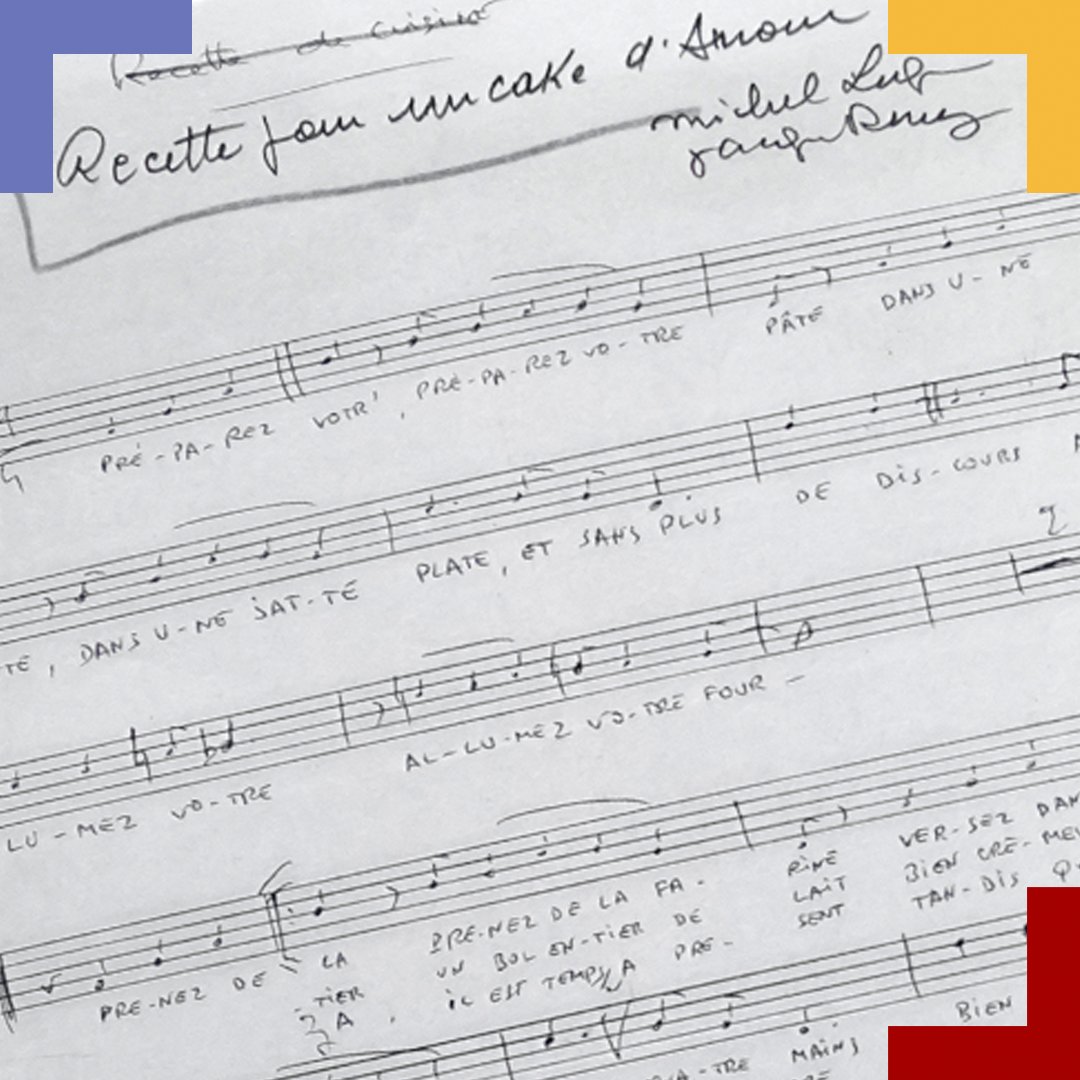 Recette de cuisine
Recette pour un cake d'Amour
michel Leg
Jacques Demy
PRÉ-PA-REZ VOTR', PRÉ-PA-REZ VO-TRE PÂTE DANS U-NE
TE, DANS U-NE JAT-TE PLATE, ET SANS PLUS DE DIS-COURS A
LU-MEZ VO-TRE AL-LU-MEZ VO-TRE FOUR -
PRE-NEZ DE LA PRE-NEZ DE LA FA- RINE VER-SEZ DAN
TIER UN BOL EN-TIER DE LAIT BIEN CRÉ-MEU
A, IL EST TEMPS A PRE- SENT TAN-DIS QU
A-TRE MAINS BIEN